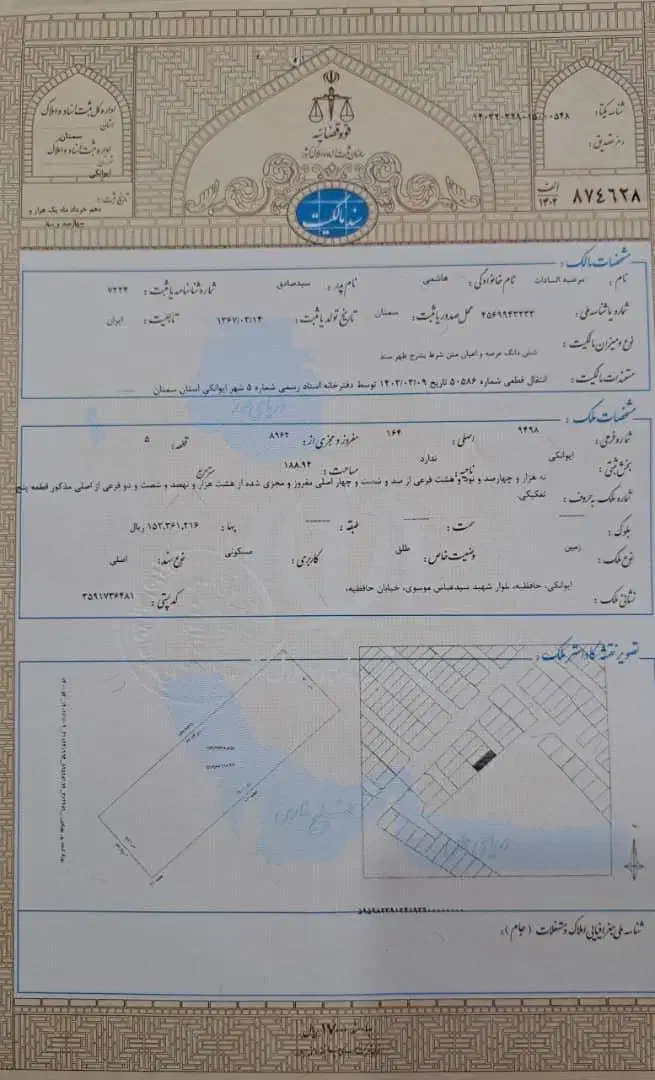 قوه قضائیه
سازمان ثبت اسناد و املاک کشور
سند مالکیت
اداره کل ثبت اسناد و املاک
استان
سمنان
اداره ثبت اسناد و املاک
ایوانکی
تاریخ ثبت :
دهم خرداد ماه یک هزار و
چهارصد و سه
شناسه یکتا :
رمز تصدیق :
الف ۱۴۰۲ ۸۷۴۶۲۸
مشخصات مالک :
نام : مرضیه السادات نام خانوادگی : هاشمی نام پدر : سیدصادق شماره شناسنامه یا ثبت : ۷۲۲۴
شماره یا شناسه ملی : ۴۵۶۹۹۴۳۲۳۳ محل صدور یا ثبت : سمنان تاریخ تولد یا ثبت : ۱۳۶۷/۰۲/۱۴ تابعیت : ایران
نوع و میزان مالکیت : شش دانگ عرصه و اعیان متن شرط بشرح ظهر سند
مستندات مالکیت : انتقال قطعی شماره ۵۰۵۸۶ تاریخ ۱۴۰۳/۰۳/۰۹ توسط دفترخانه اسناد رسمی شماره ۵ شهر ایوانکی استان سمنان
مشخصات ملک :
شماره فرعی : ۹۴۹۸ اصلی : ۱۶۴ مفروز و مجزی از : ۸۹۶۲ قطعه : ۵
بخش ثبتی : ایوانکی ناحیه : ندارد مساحت : ۱۸۸.۹۴ مترمربع
شماره ملک به حروف : نه هزار و چهارصد و نود و هشت فرعی از صد و شصت و چهار اصلی مفروز و مجزی شده از هشت هزار و نهصد و شصت و دو فرعی از اصلی مذکور قطعه پنج
تفکیکی
بلوک : سمت : طبقه : بها : ۱۵۳,۳۶۱,۲۱۶ ریال
نوع ملک : زمین وضعیت خاص : طلق کاربری : مسکونی نوع سند : اصلی
نشانی ملک : ایوانکی، حافظیه، بلوار شهید سیدعباس موسوی، خیابان حافظیه، کد پستی : ۳۵۹۱۷۳۶۴۸۱
تصویر نقشه کاداستر ملک :
دریای خزر
خلیج فارس
شناسه ملی جغرافیایی املاک و مستغلات (جام) :